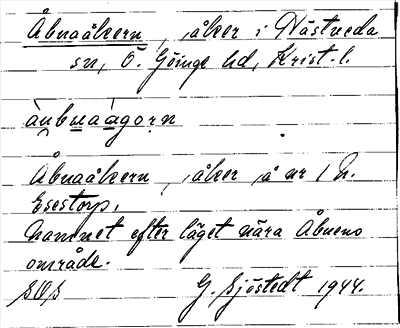 Åbnaåkern, åker i Nästveda
sn, Ö. Göinge hd, Krist. l.
àu̯bnaágorn
Åbnaåkern, åker å nr 1 N.
Esestorp,
Namnet efter läget nära Åbneno
område.
G. Sjöstedt 1944.